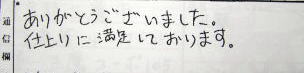 通信欄
ありがとうございました。
仕上りに満足しております。